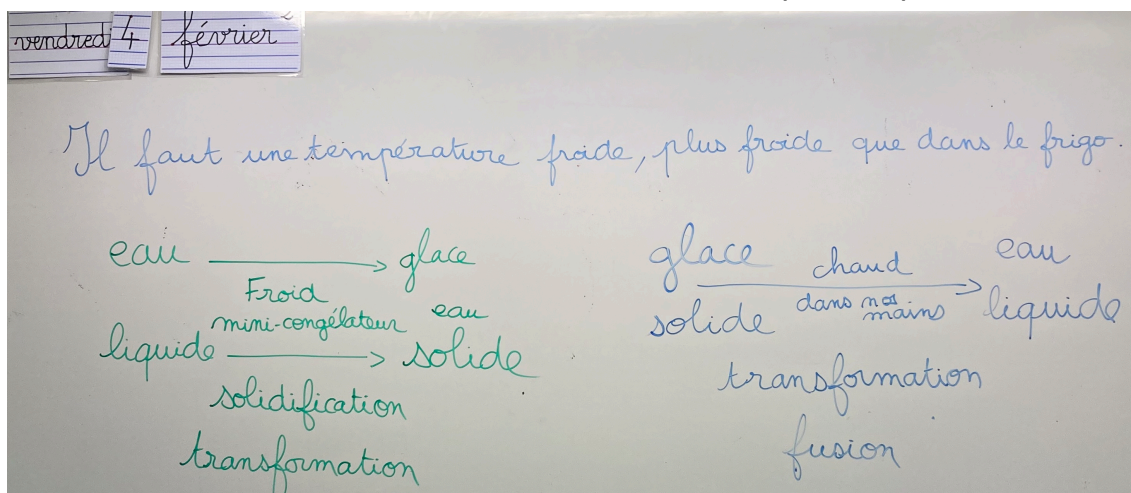 vendredi 4 février
Il faut une température froide, plus froide que dans le frigo.
eau → glace
Froid
mini-congélateur
eau
liquide → solide
solidification
transformation
glace → eau
chaud
dans nos mains
solide liquide
transformation
fusion